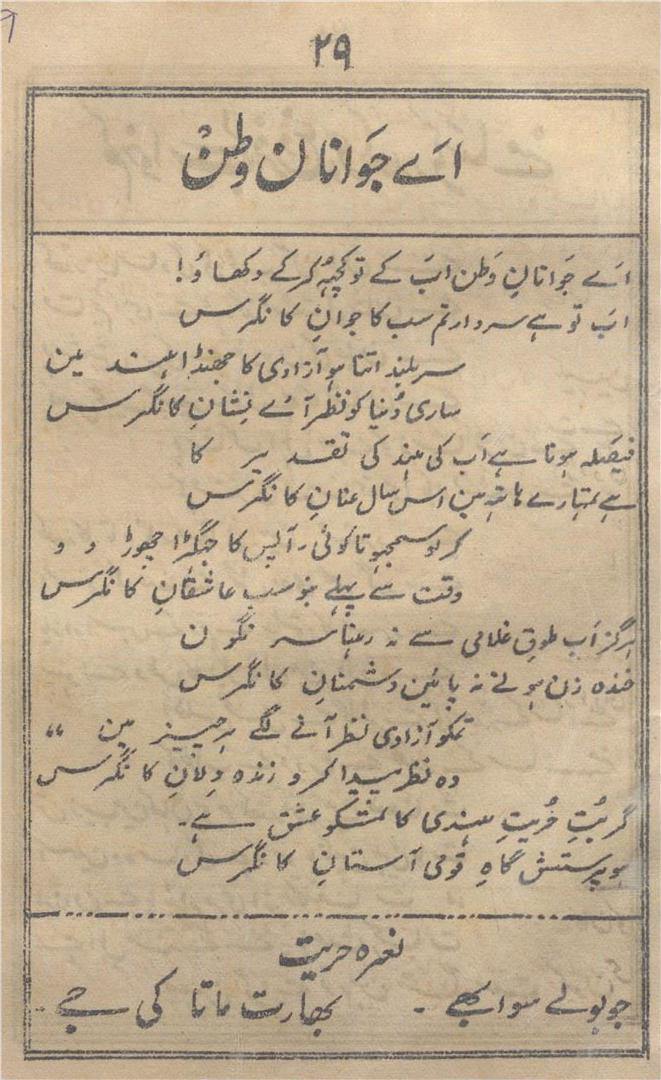 ۲۹
اَے جَوانان وطن
اَے جَوانانِ وَطن ابَ کے تو کچہہ کر کے دکھاؤ!
ابَ تو ہے سردار تم سب کا جوانِ کانگرس
سربلند اتنا ہو آزادی کا جھنڈا ہند مین
ساری دُنیا کو نظر آئے نِشانِ کانگرس
فیصَلہ ہونا ہے اَب کی ہند کی تقدیر کا
ہے تمہارے ہاتہہ مین اس سال عنانِ کانگرس
کر لو سمجہوتا کوئی، آپس کا جہگڑا چھوڑ دو
وقت سے پہلے بنو سب عاشقانِ کانگرس
ہرگز اَب طوقِ غلامی سے نہ رہنا سر نگون
خندہ زن ہونے نہ پائین دشمنانِ کانگرس
تمکو آزادی نظر آنے لگے ہر چیز مین ،،
وہ نظر پیدا کرو زندہ دِلانِ کانگرس
گر بُتِ حُریتِ ہندی کا تمکو عشق ہے۔
ہو پرستش گاہِ قومی آستانِ کانگرس
نعرہ حریت
جو بولے سو ابھے - بھارت ماتا کی جے -